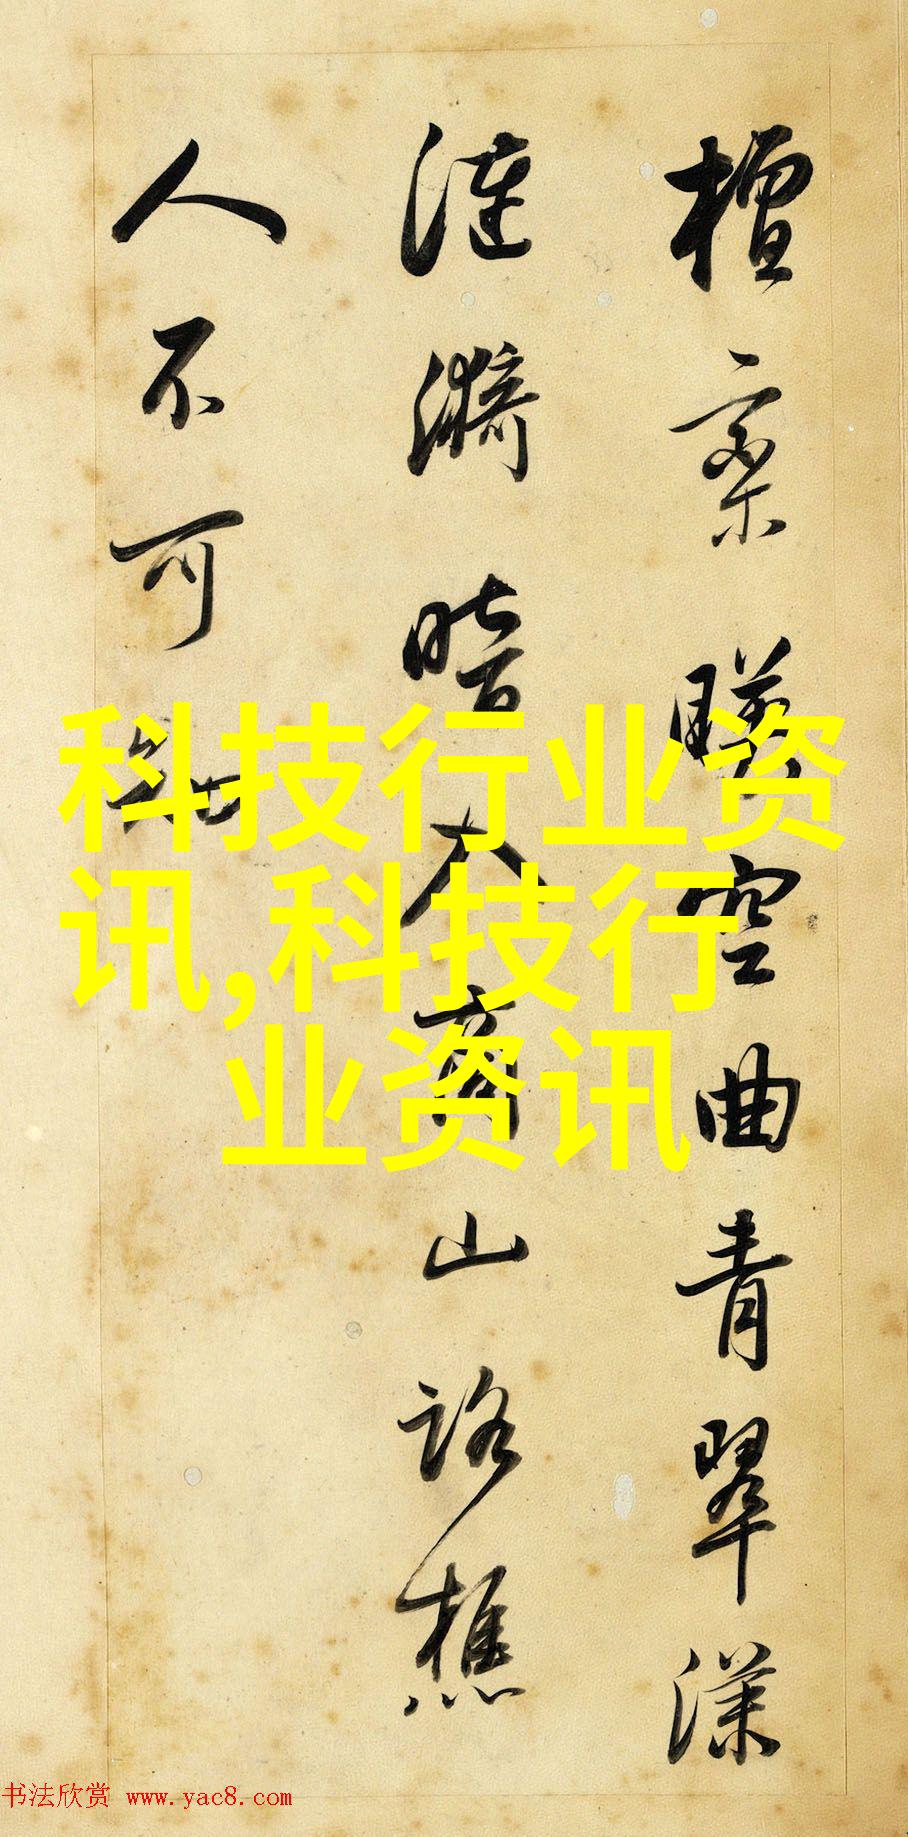 檀栾暎空曲青翠漾
涟漪暗入商山路樵
人不可知
科技行业资
讯,科技行
业资讯
书法欣赏 www.yac8.com